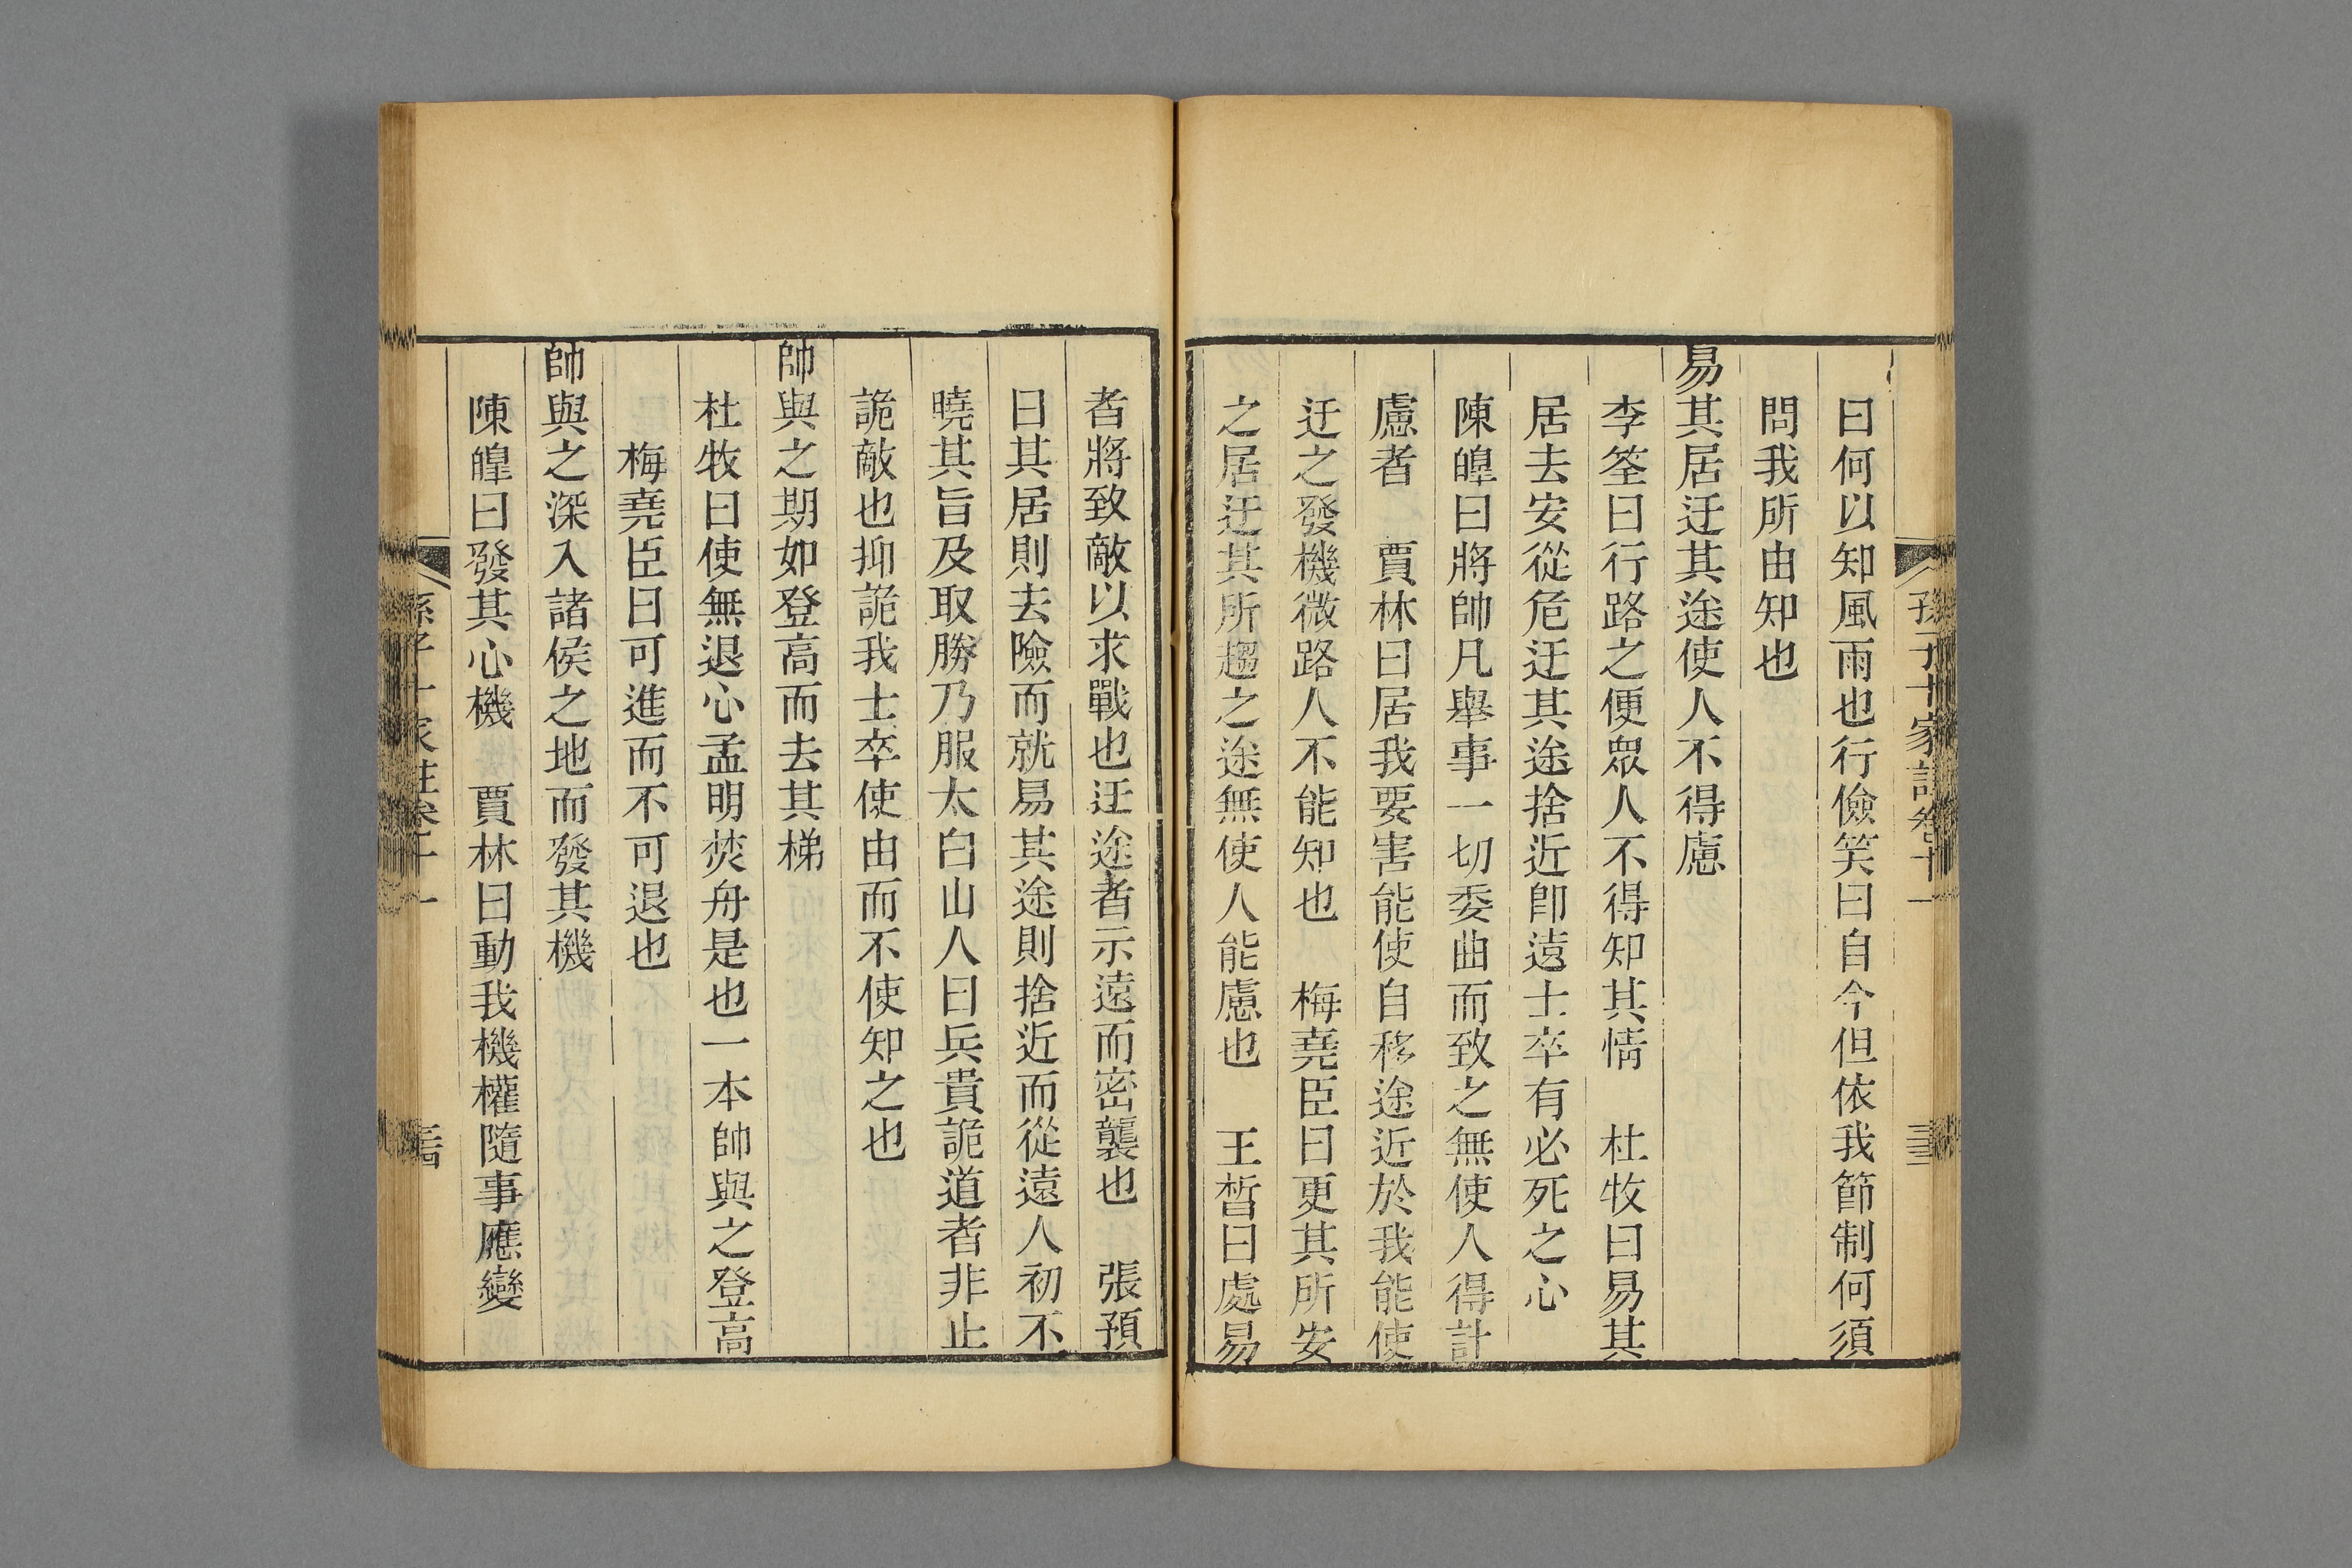 孫子十家註卷十一
曰何以知風雨也行儉笑曰自今但依我節制何須
問我所由知也
易其居迂其途使人不得慮
李筌曰行路之便眾人不得知其情　杜牧曰易其
居去安從危迂其途捨近卽遠士卒有必死之心
陳皥曰將帥凡舉事一切委曲而致之無使人得計
慮者　賈林曰居我要害能使自移途近於我能使
迂之發機微路人不能知也　梅堯臣曰更其所安
之居迂其所趨之途無使人能慮也　王晳曰處易
者將致敵以求戰也迂途者示遠而密襲也　張預
曰其居則去險而就易其途則捨近而從遠人初不
曉其旨及取勝乃服太白山人曰兵貴詭道者非止
詭敵也抑詭我士卒使由而不使知之也
帥與之期如登高而去其梯
杜牧曰使無退心孟明焚舟是也一本帥與之登高
梅堯臣曰可進而不可退也
帥與之深入諸侯之地而發其機
陳皥曰發其心機　賈林曰動我機權隨事應變
孫子十家註卷十一